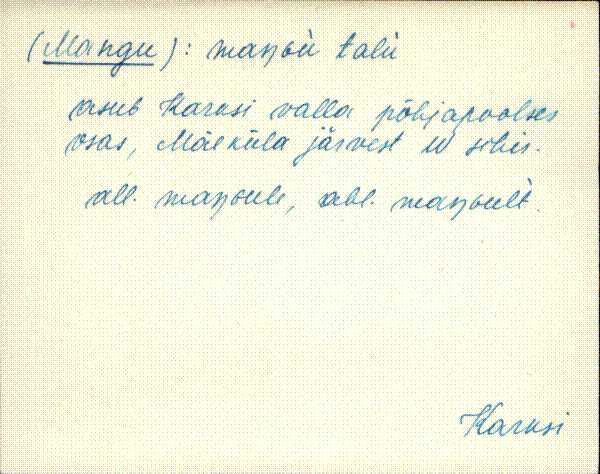 (Mangu): maŋGù talù
asub Karksi valla põhjapoolses
osas, Mäeküla järvest W sihis.
all. maŋGule, abl. maŋGult.
Karksi